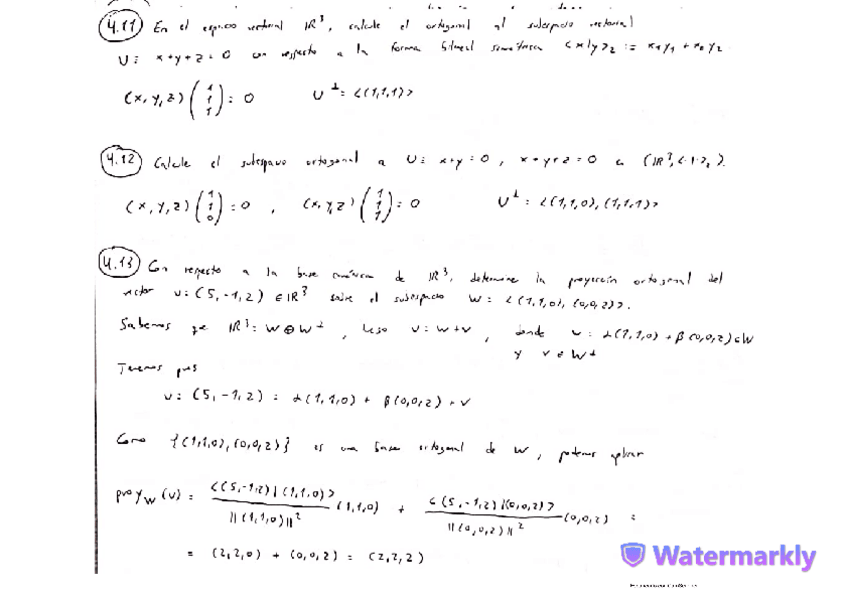 4.11 En el espacio vectorial IR³, calcule el ortogonal al subespacio vectorial
U: x+y+z=0 con respecto a la forma bilineal simétrica <x|y>₂ := x₁y₁ + x₂y₂.
(x,y,z) (1 1 1) = 0 U⊥ = <(1,1,1)>
4.12 Calcule el subespacio ortogonal a U: x+y=0, x+y+z=0 en (IR³,<·|·>₂).
(x,y,z) (1 1 0) = 0, (x,y,z) (1 1 1) = 0 U⊥ = <(1,1,0),(1,1,1)>
4.13 Con respecto a la base canónica de IR³, determine la proyección ortogonal del
vector v=(5,-1,2) ∈ IR³ sobre el subespacio W = <(1,1,0),(0,0,2)>.
Sabemos que IR³ = W ⊕ W⊥, luego donde α(1,1,0) + β(0,0,2) ∈ W
y v ∈ W⊥
Tenemos pues
u = (5,-1,2) = α(1,1,0) + β(0,0,2) + v
Como {(1,1,0),(0,0,2)} es una base ortogonal de W, podemos aplicar
proy_W(v) = <(5,-1,2)|(1,1,0)> / ||(1,1,0)||² (1,1,0) + <(5,-1,2)|(0,0,2)> / ||(0,0,2)||² (0,0,2) =
= (2,2,0) + (0,0,2) = (2,2,2)
Watermarkly